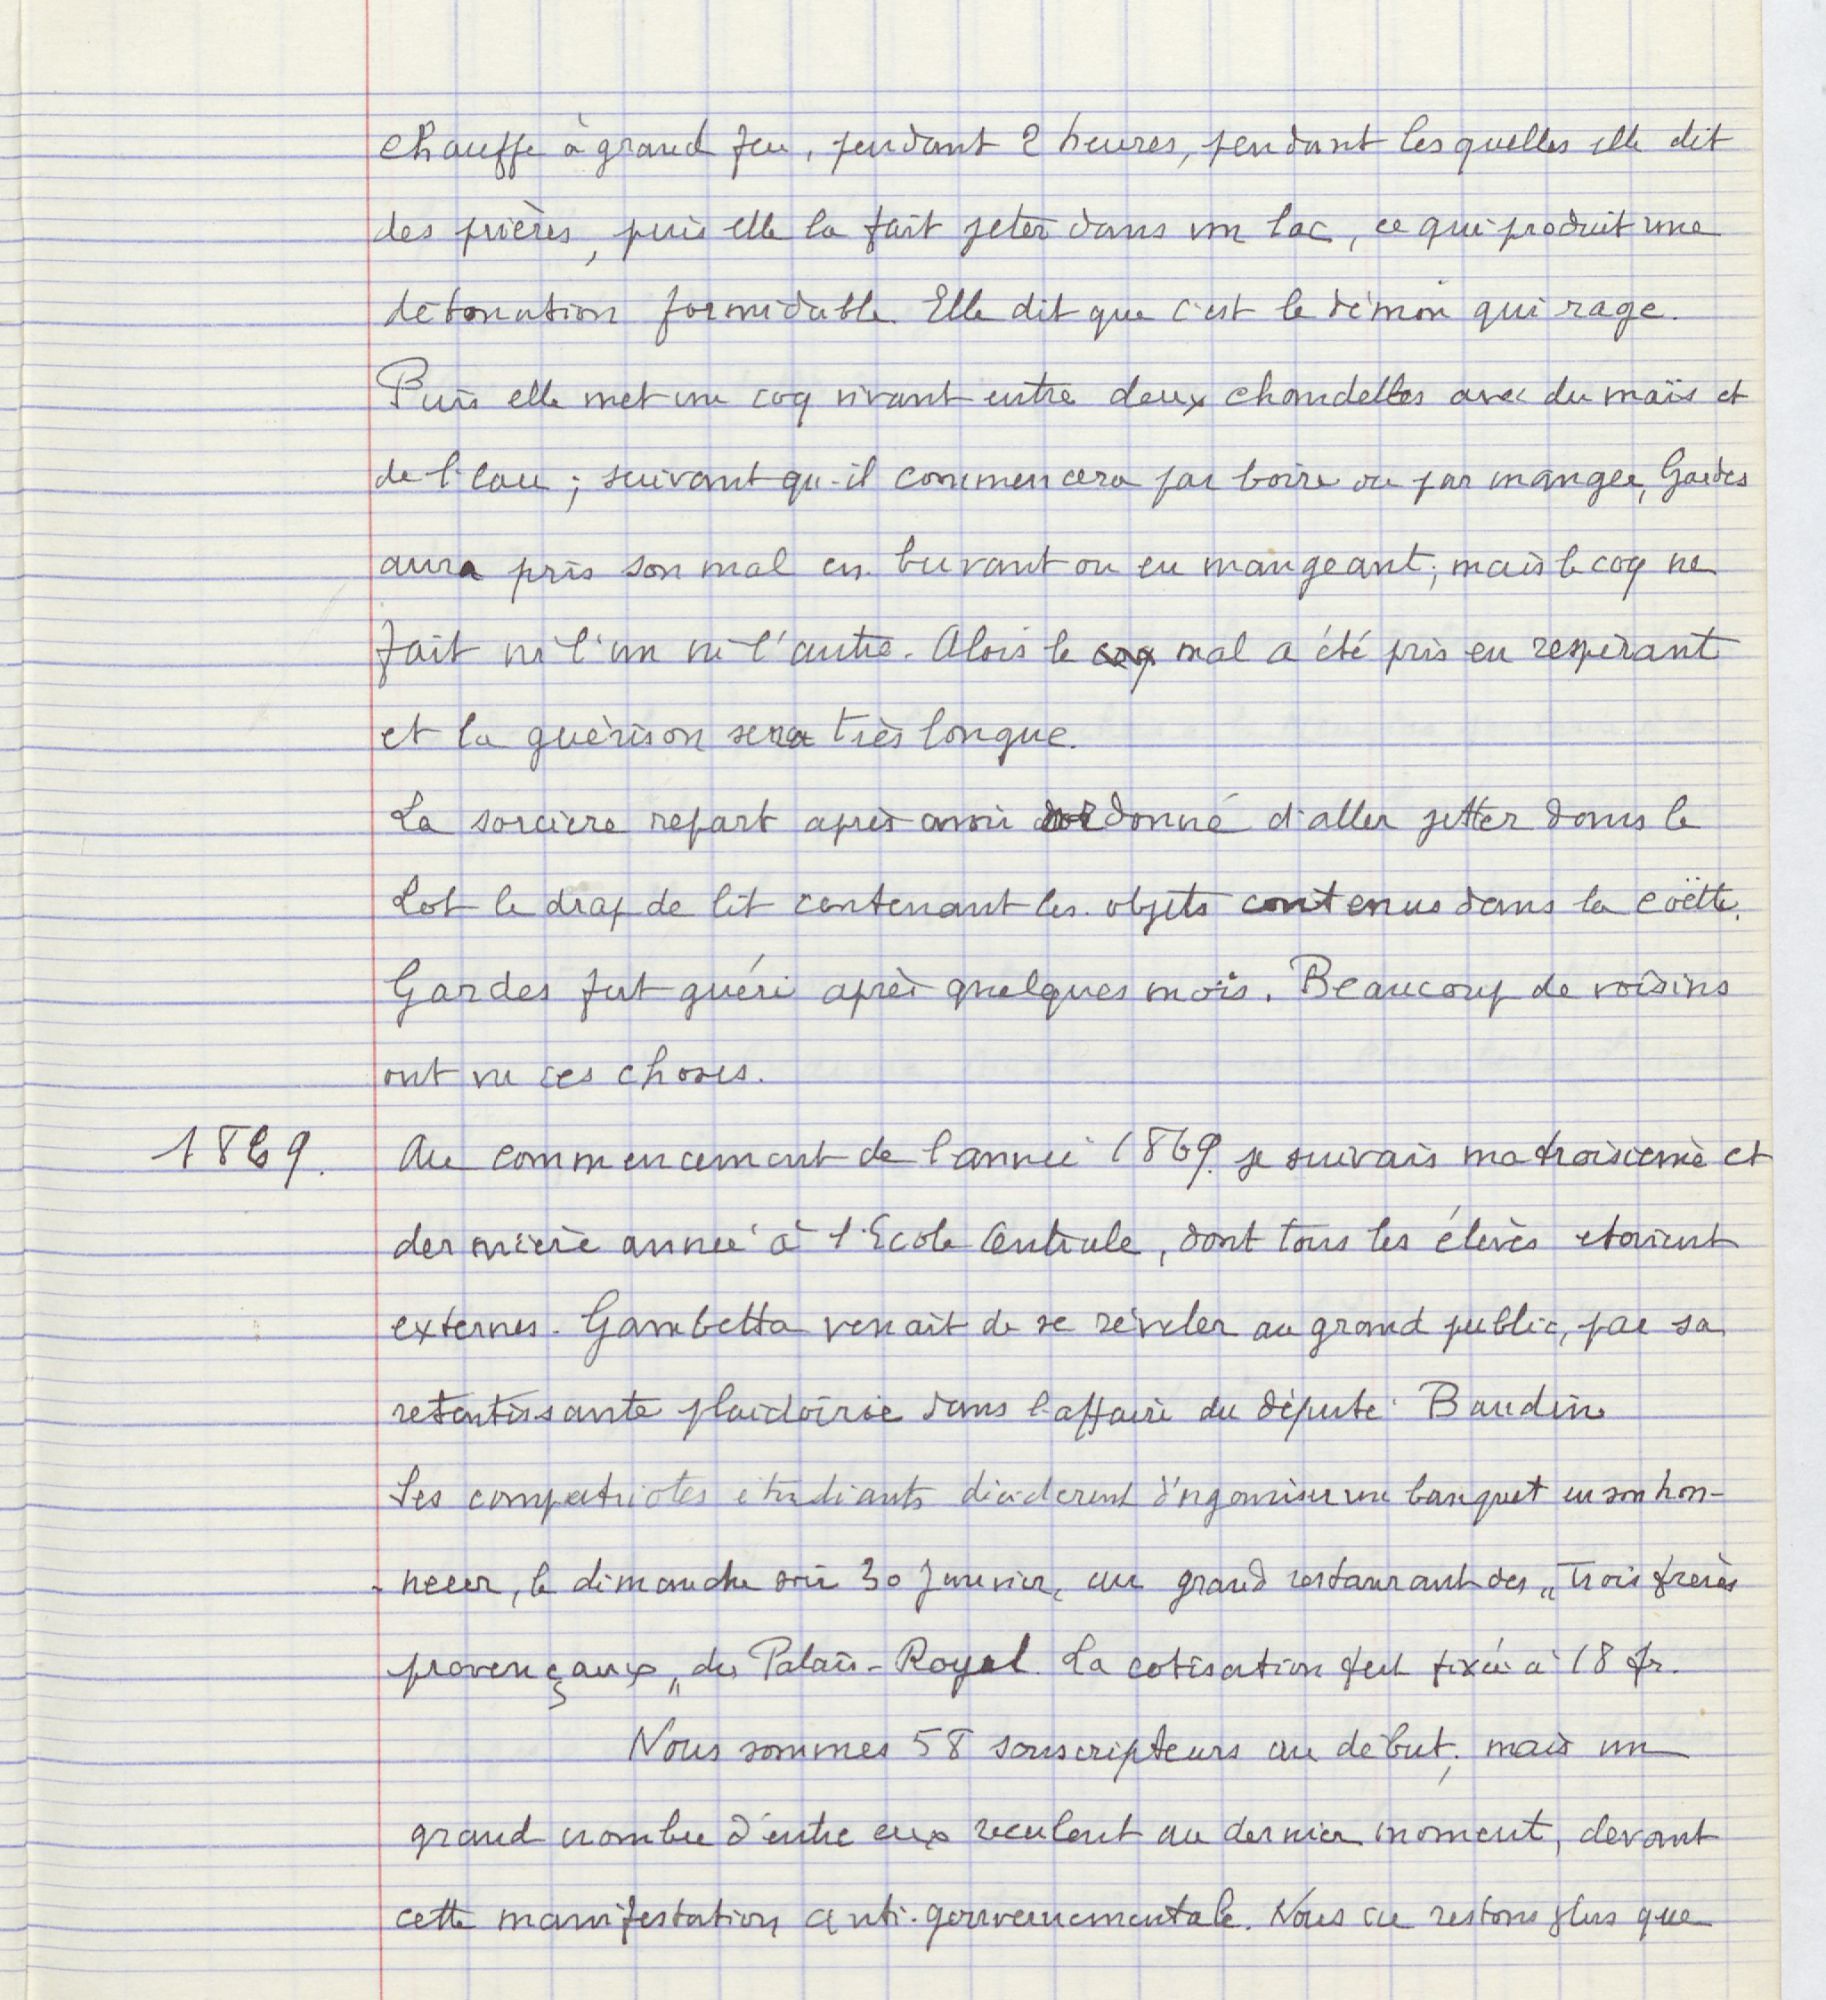 chauffe à grand feu, pendant 2 heures, pendant lesquelles elle dit
des prières, puis elle la fait jeter dans un lac, ce qui produit une
détonation formidable. Elle dit que c'est le démon qui rage.
Puis elle met un coq vivant entre deux chandelles avec du maïs et
de l'eau ; suivant qu'il commencera par boire ou par manger, Gardes
aura pris son mal en buvant ou en mangeant ; mais le coq ne
fait ni l'un ni l'autre. Alors le mal a été pris en respirant
et la guérison sera très longue.
La sorcière repart après avoir donné d'aller jetter dans le
Lot le drap de lit contenant les objets contenus dans la coëtte.
Gardes fut guéri après quelques mois. Beaucoup de voisins
ont vu ces choses.
1869. Au commencement de l'année 1869. je suivais ma troisième et
dernière année à l'Ecole Centrale, dont tous les élèves etaient
externes. Gambetta venait de se révéler au grand public, par sa
retentissante plaidoirie dans l'affaire du député Baudin
Ses compatriotes étudiants décidèrent d'organiser un banquet en son hon-
-neur, le dimanche soir 30 Janvier, au grand restaurant des „Trois frères
provençaux„ du Palais-Royal. La cotisation fut fixée à 18 fr.
Nous sommes 58 souscripteurs au début ; mais un
grand nombre d'entre eux reculent au dernier moment, devant
cette manifestation anti-gouvernementale. Nous ne restons plus que